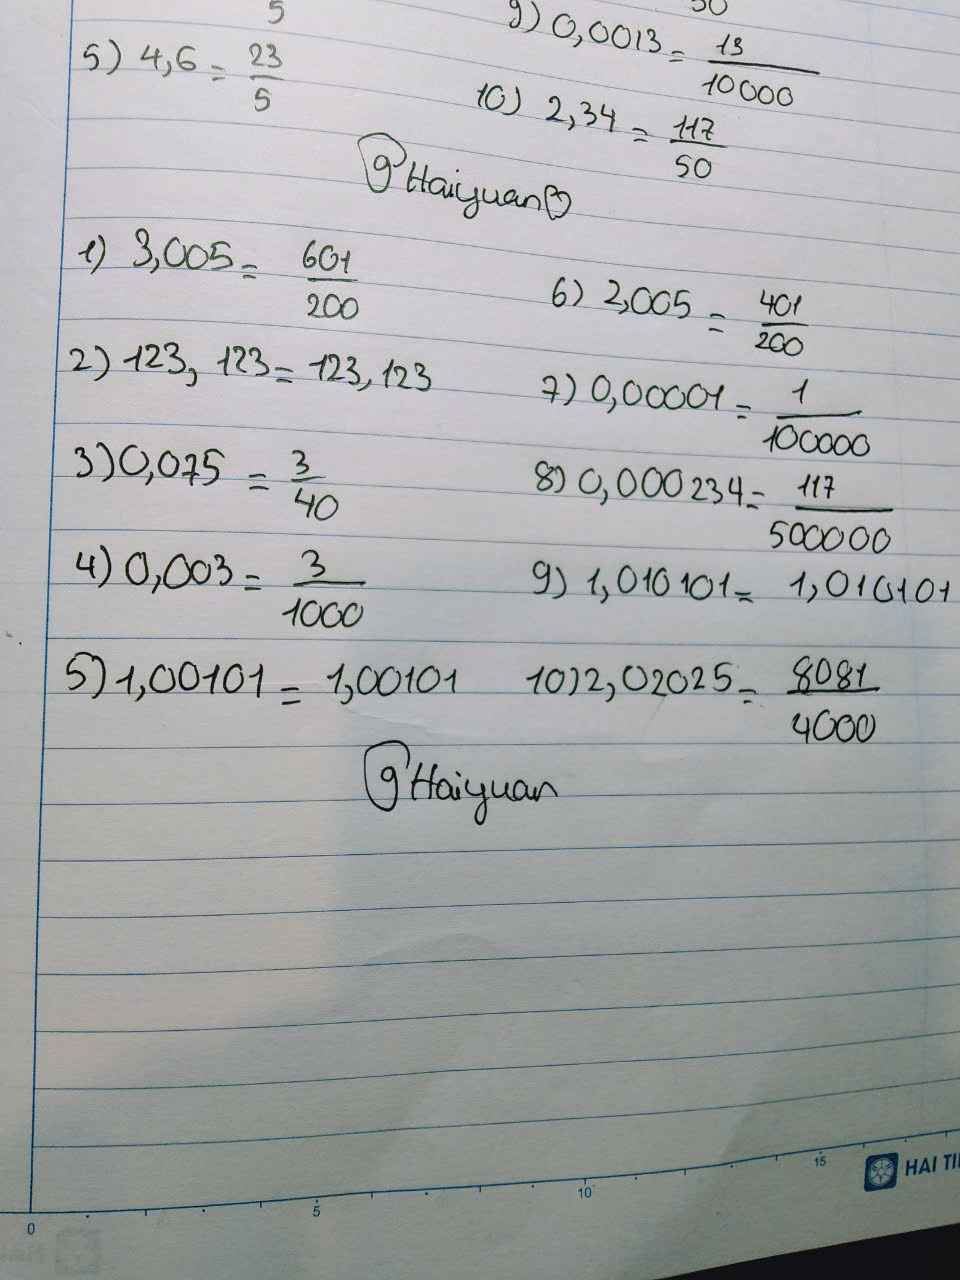 5
50
9) 0,0013 = 13/10000
5) 4,6 = 23/5
10) 2,34 = 117/50
Haiyuan
1) 3,005 = 601/200
6) 2,005 = 401/200
2) 123, 123 = 123, 123
7) 0,00001 = 1/100000
3) 0,075 = 3/40
8) 0,000234 = 117/500000
4) 0,003 = 3/1000
9) 1,010101 = 1,010101
5) 1,00101 = 1,00101
10) 2,02025 = 8081/4000
Haiyuan
0 5 10 15
HAI